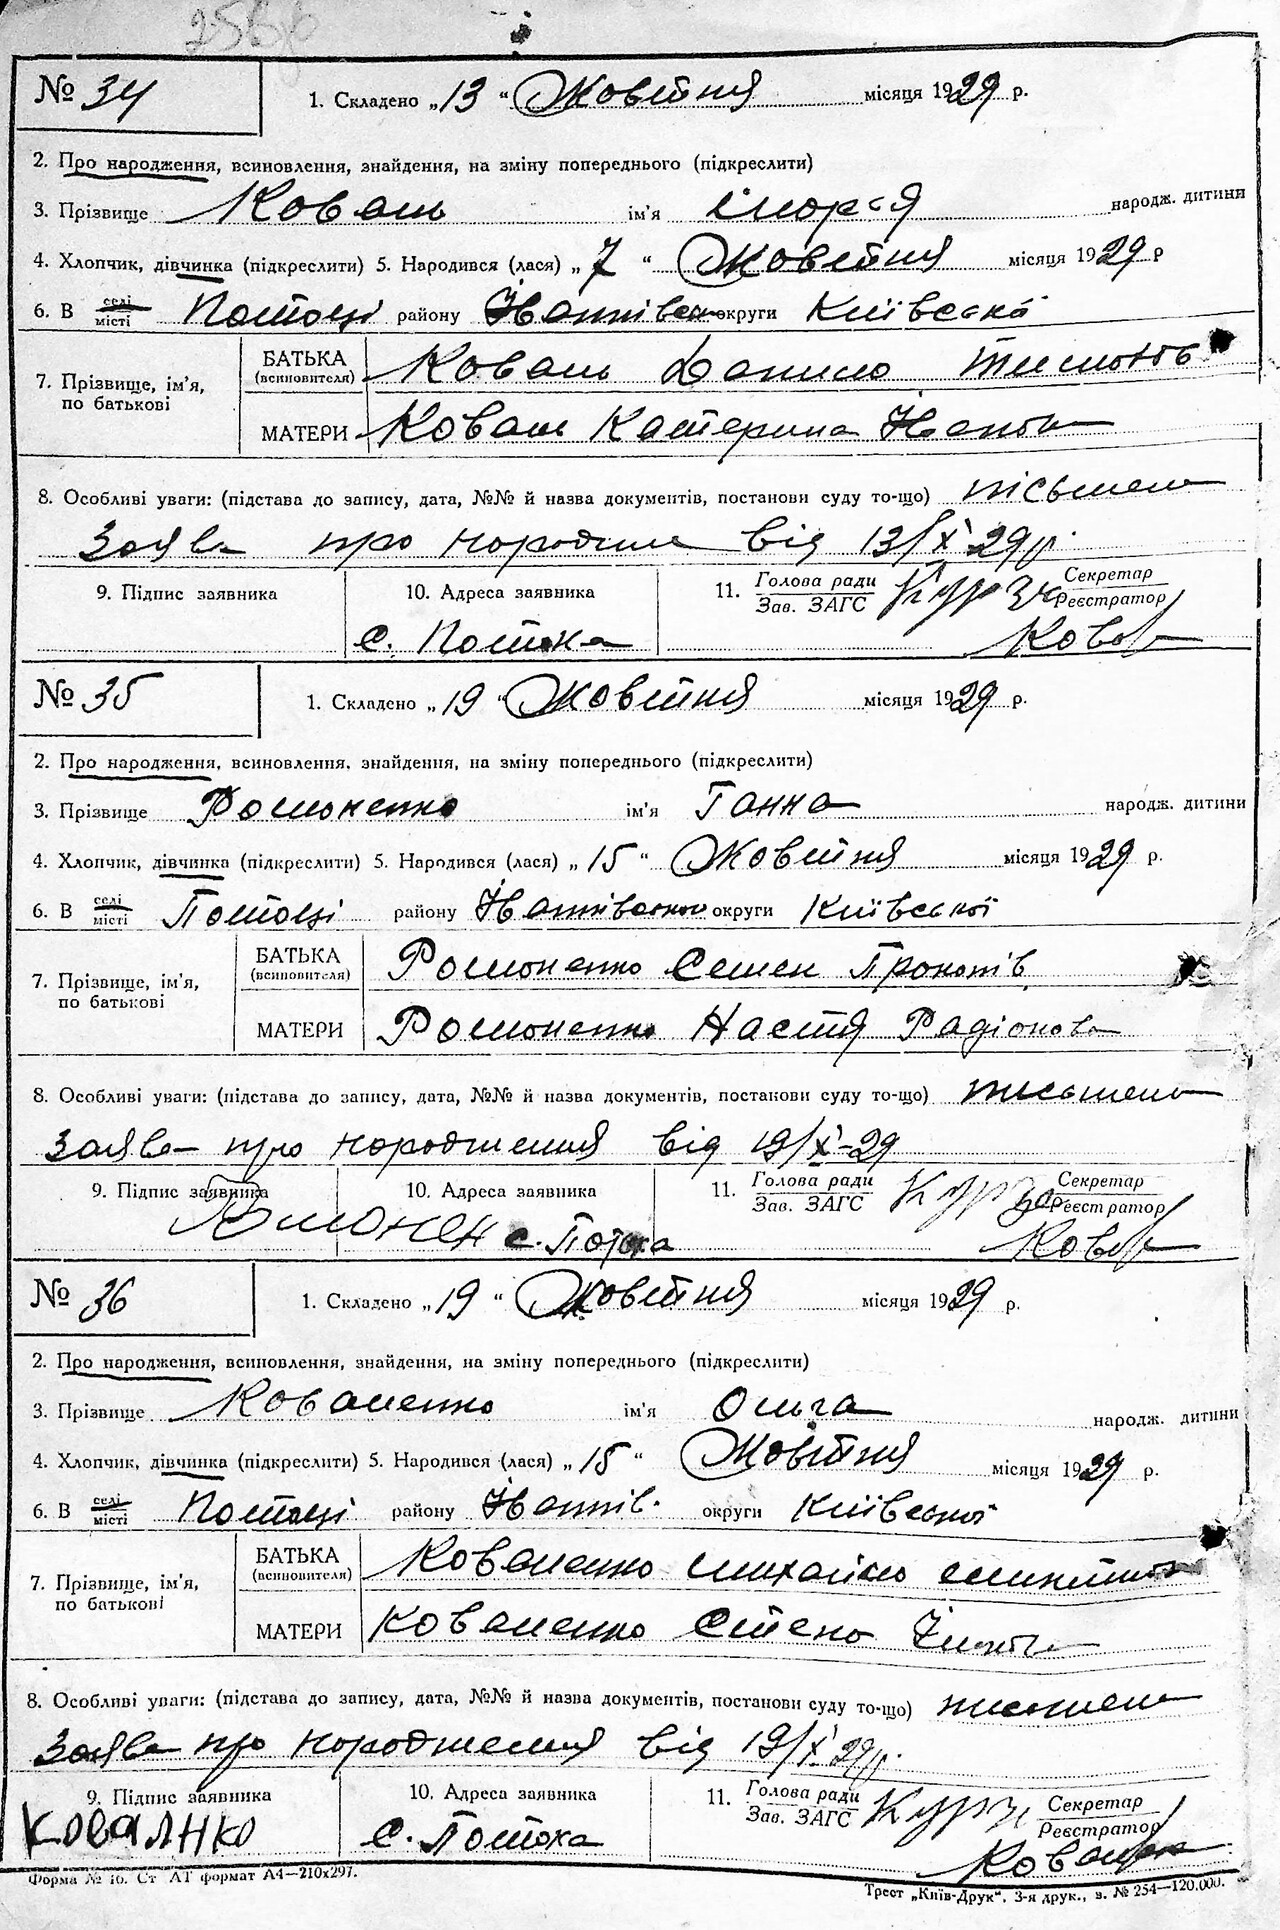 № 34 1. Складено „13“ Жовтня місяця 1929 р.
2. Про народження, всиновлення, знайдення, на зміну попереднього (підкреслити)
3. Прізвище Коваль ім'я народж. дитини
4. Хлопчик, дівчинка (підкреслити) 5. Народився (лася) „7“ Жовтня місяця 1929 р
6. В селі/місті Потоці району округи Київської
7. Прізвище, ім'я, по батькові БАТЬКА (всиновителя) Коваль Данило
МАТЕРИ Коваль Катерина
8. Особливі уваги: (підстава до запису, дата, №№ й назва документів, постанови суду то-що) письмена
Заява про народжен від 13/X 29р.
9. Підпис заявника 10. Адреса заявника 11. Голова ради Секретар
Зав. ЗАГС Реєстратор
с. Потока
№ 35 1. Складено „19“ Жовтня місяця 1929 р.
2. Про народження, всиновлення, знайдення, на зміну попереднього (підкреслити)
3. Прізвище Романенко ім'я Ганна народж. дитини
4. Хлопчик, дівчинка (підкреслити) 5. Народився (лася) „15“ Жовтня місяця 1929 р.
6. В селі/місті Потоці району округи Київської
7. Прізвище, ім'я, по батькові БАТЬКА (всиновителя) Романенко Семен Прокопів
МАТЕРИ Романенко Настя Радіонова
8. Особливі уваги: (підстава до запису, дата, №№ й назва документів, постанови суду то-що) письмена
Заява про народження від 19/X-29
9. Підпис заявника 10. Адреса заявника 11. Голова ради Секретар
Зав. ЗАГС Реєстратор
с. Потока
№ 36 1. Складено „19“ Жовтня місяця 1929 р.
2. Про народження, всиновлення, знайдення, на зміну попереднього (підкреслити)
3. Прізвище Коваленко ім'я Ольга народж. дитини
4. Хлопчик, дівчинка (підкреслити) 5. Народився (лася) „15“ Жовтня місяця 1929 р.
6. В селі/місті Потоці району округи Київської
7. Прізвище, ім'я, по батькові БАТЬКА (всиновителя) Коваленко Михайло
МАТЕРИ Коваленко
8. Особливі уваги: (підстава до запису, дата, №№ й назва документів, постанови суду то-що) письмена
Заява про народження від 19/X 29р.
9. Підпис заявника 10. Адреса заявника 11. Голова ради Секретар
Зав. ЗАГС Реєстратор
КОВАЛНКО с. Потока
Форма № 16. Ст АТ формат А4—210х297. Трест „Київ-Друк“, 3-я друк., з. № 254—120.000.